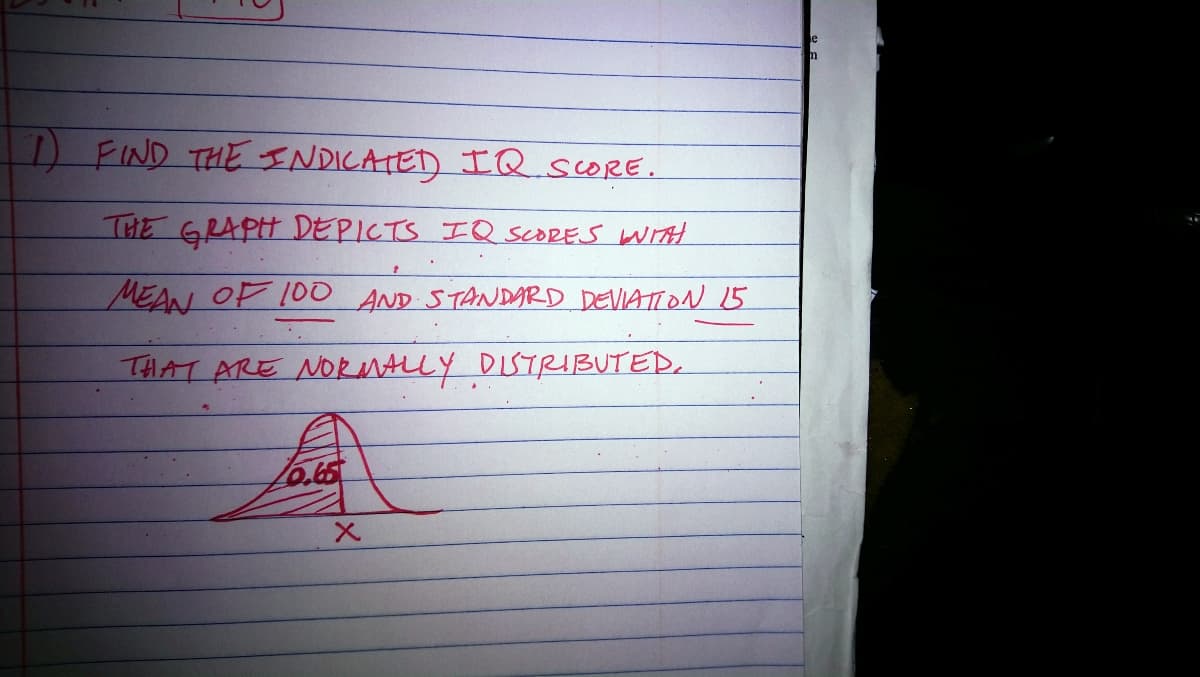 1) FIND THE INDICATED IQ SCORE.
THE GRAPH DEPICTS IQ SCORES WITH
MEAN OF 100 AND STANDARD DEVIATION 15
THAT ARE NORMALLY DISTRIBUTED.
0.65
X